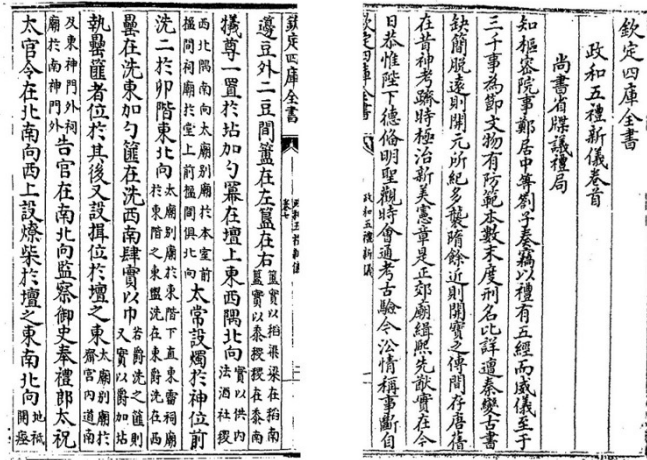 欽定四庫全書
政和五禮新儀卷首
尚書省牒議禮局
知樞密院事鄭居中等劄子奏竊以禮有五經而威儀至于
三千事為節文物有防範本數末度刑名比詳遭秦變古書
缺簡脫遠則開元所紀多襲隋餘近則開寶之傳間存唐舊
在昔神考躋時極治新美憲章是正郊廟緝熙先猷實在今
日恭惟陛下德備明聖觀時會通考古驗今㳂情稱事斷自
欽定四庫全書
政和五禮新儀
欽定四庫全書
卷七
邊豆外二豆間簠在左簋在右簠實以稻粱粱在稻南簋實以黍稷稷在黍南
犧尊一置於坫加勺冪在壇上東西隅北向實以供内法酒社稷
西北隅南向太廟别廟於本室前楹間祠廟於堂上前楹間俱北向太常設燭於神位前
洗二於卯階東北向太廟别廟於東階下直東霤祠廟於東階之東盥洗在東爵洗在西
罍在洗東加勺篚在洗西南肆實以巾若爵洗之篚則又實以爵加坫
執罍篚者位於其後又設揖位於壇之東太廟别廟於齋宫内道南
及東神門外祠廟於南神門外告官在南北向監察御史奉禮郎太祝
太官令在北南向西上設燎柴於壇之東南北向地祇開瘞